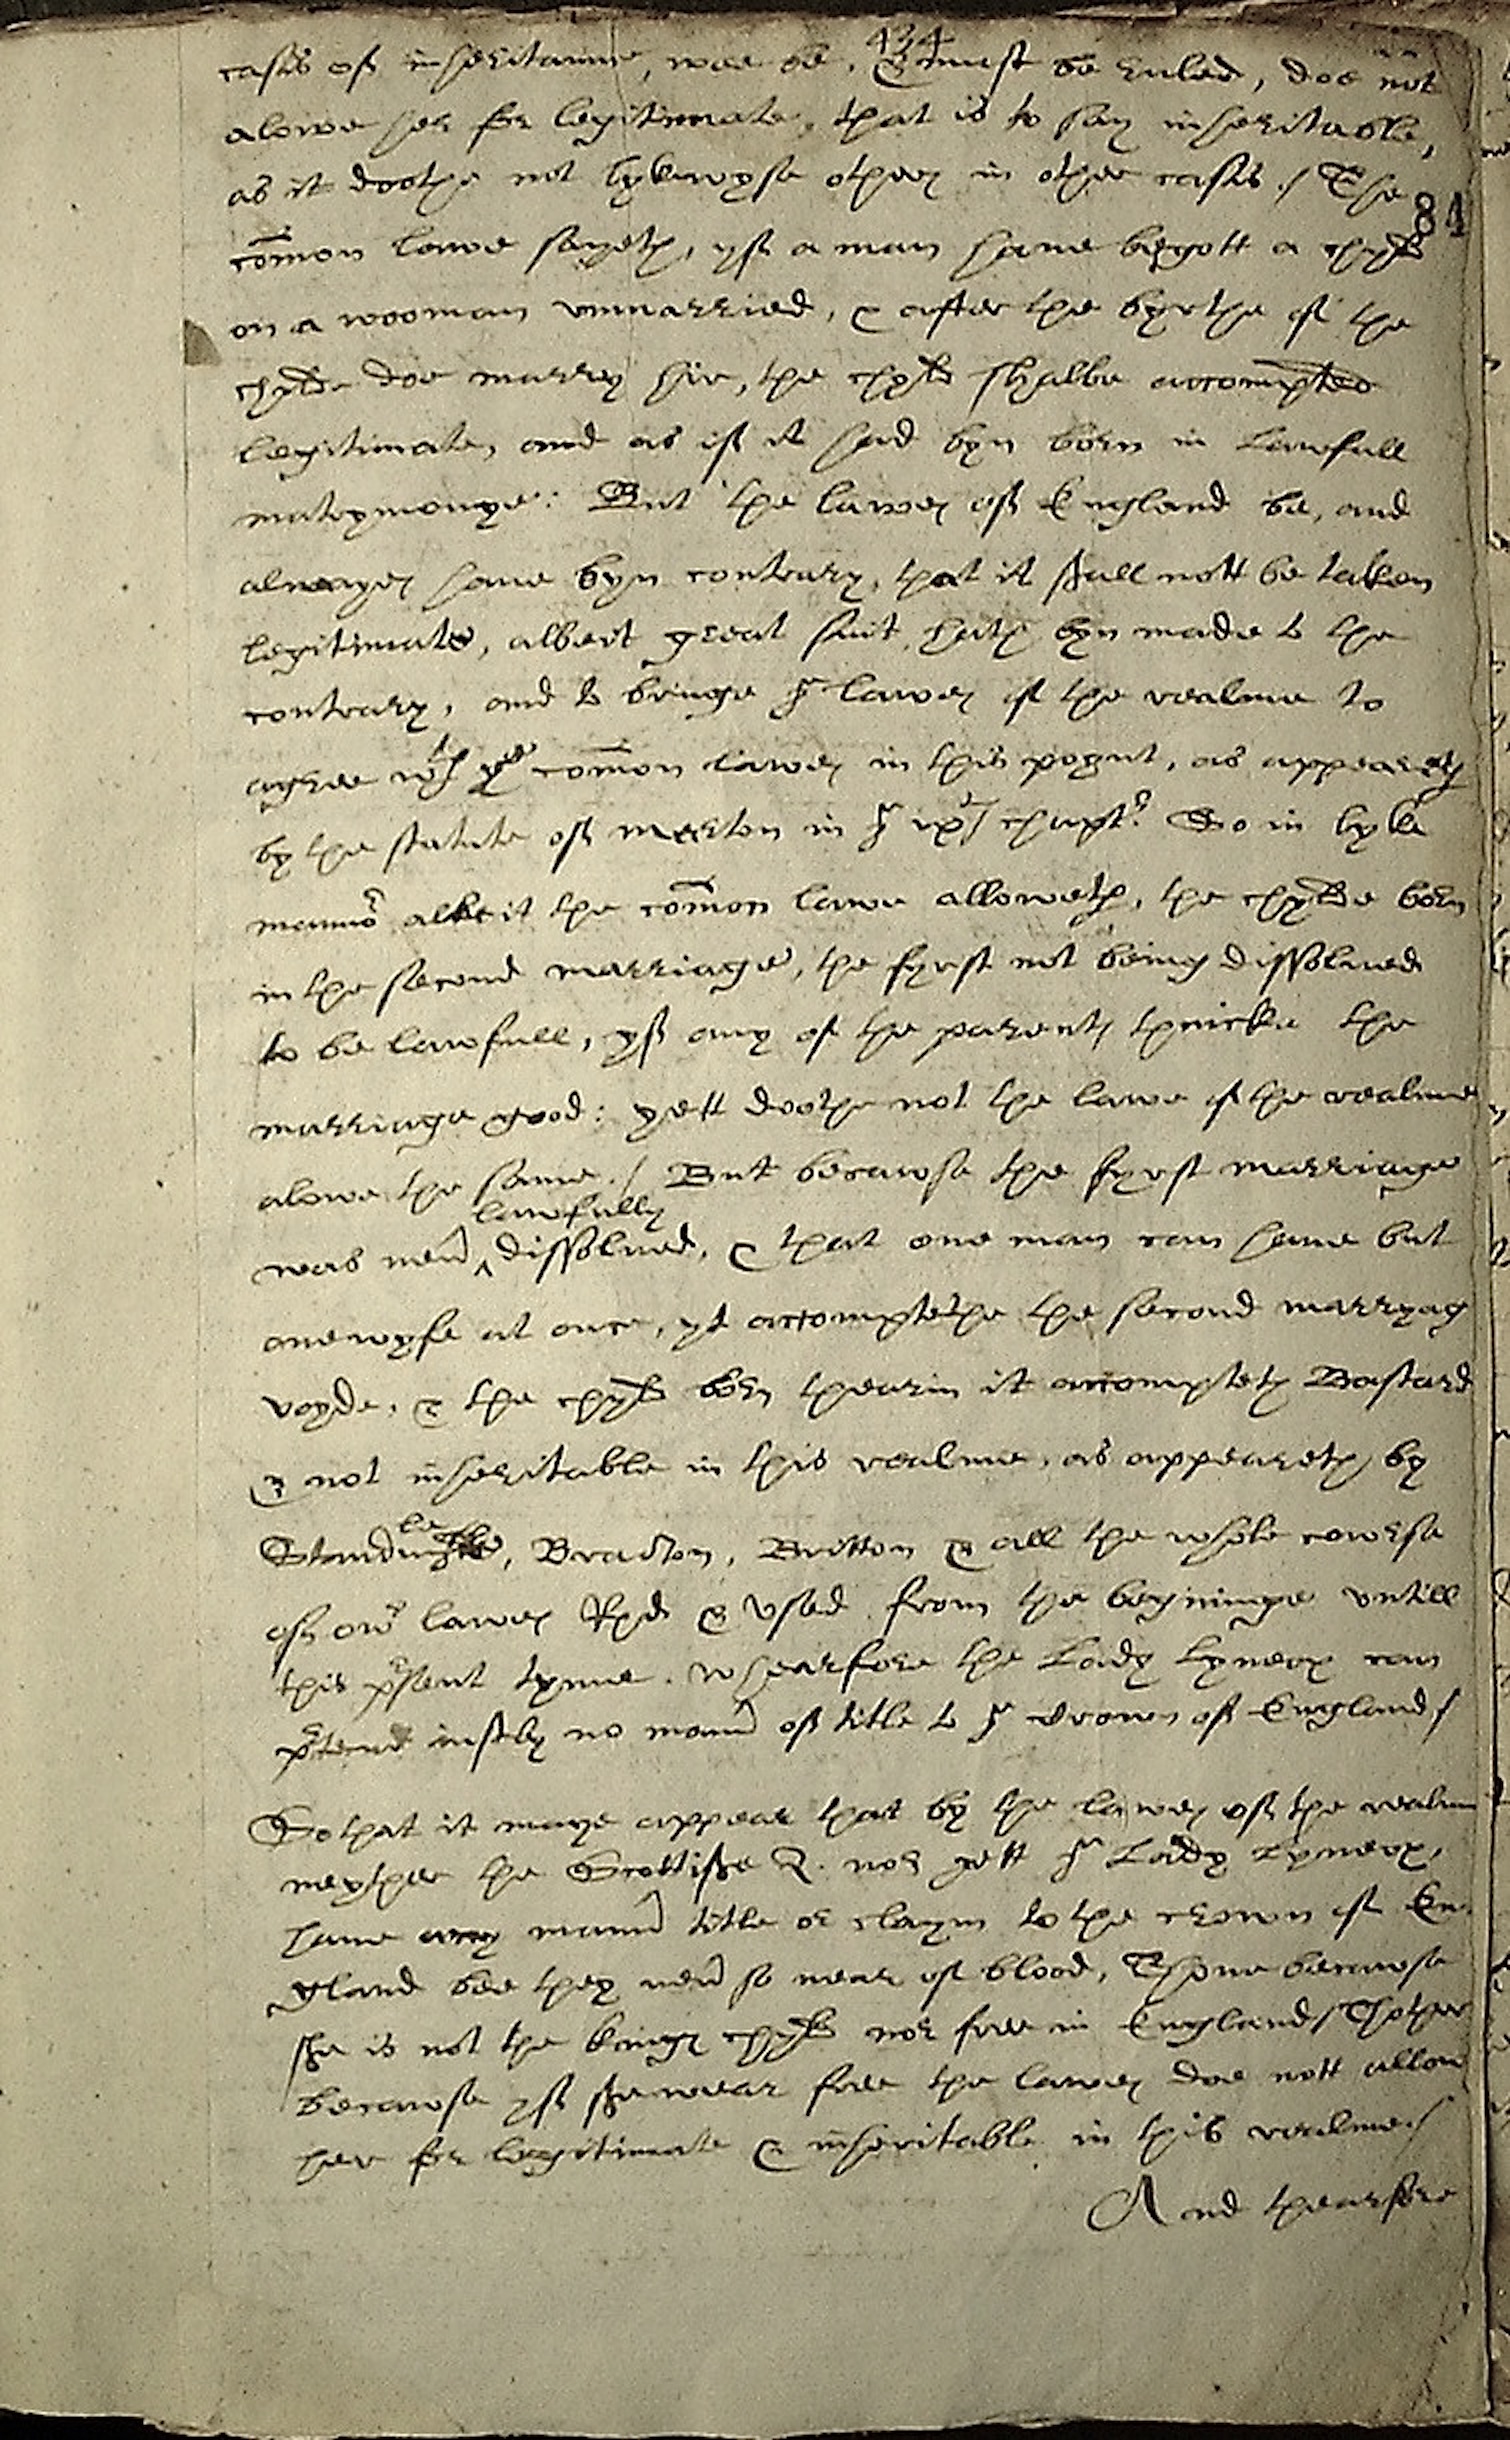 434
cases of inheritaunce, wee be, & must be ruled, doe not
alowe her for legitimate, that is to say inheritable,
as it doothe not lykewyse other in other cases./ The
84
com̄on lawe sayeth, yf a man have begott a chyld
on a wooman vnmarried, & after the byrthe of the
chylde doe marrey hir, the chyld shalbe accompted
legitimate, and as if it had byn born in Lawfull
matrymonye: But the lawes of England be, and
alwayes have byn contrary, that it shall nott be taken
legitimate, albeit great suit hath byn made to the
contrary, and to bringe yͤ lawes of the realme to
agree wᵗʰ yᵉ com̄on lawes in this poynt, as appeareth
by the statute of Merton in yͤ ixᵗʰ chaptʳ. So in lyke
manner albeit the com̄on lawe alloweth, the chylde born
in the second marriage, the fyrst not being dissolued
to be lawfull, yf any of the parents thincke the
marriage good: yett doothe not the lawe of the realme
alowe the same./ But becawse the fyrst marriage
lawfully
was neu̅ ^ dissolued, & that one man can have but
one wyfe at once, yt accomptethe the second marryag
voyde, & the chyld born thearin it accompteth Bastard
& not inheritable in this realme, as appeareth by
, Bracton, Britton & all the whole cowrse
of owʳ lawes & vsed from the beginninge vntill
this pʳsent tyme. Whearfore the Lady Lyneox can
pʳtend iustly no mann̅ of title to yͤ Crown of England/
So that it maye appear that by the lawes of the realm
neyther the Scottishe Q. nor yett yͤ Lady Lyneox,
have any mann̅ title or claym to the crown of En-
gland bee they neu̅ so near of blood, Thone becawse
she is not the kings chyld nor free in England/ Thother
becawse yf she wear free the lawes doe nott allow
her for legitimate & inheritable in this realme./
And thearfore